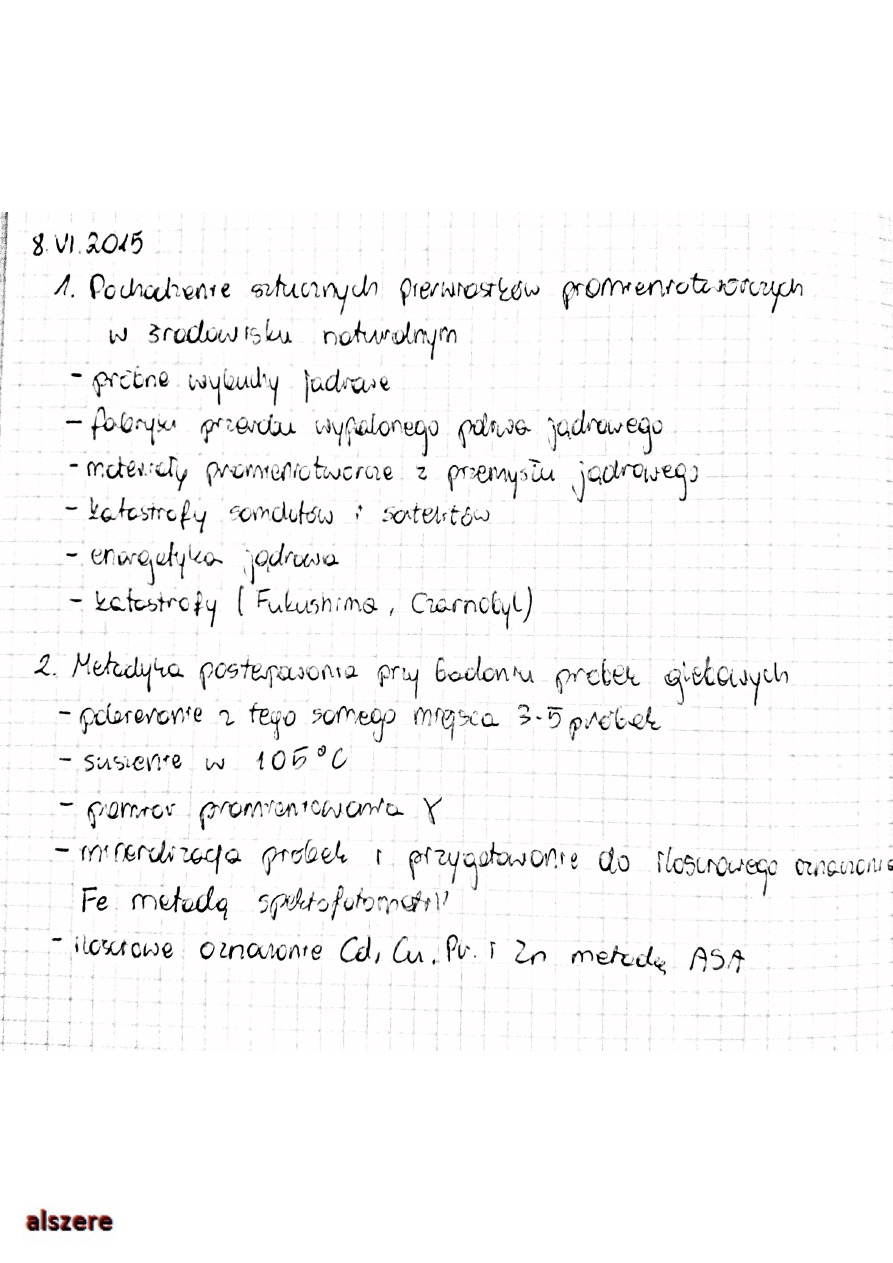 8.VI.2015
1. Pochodzenie sztucznych pierwiastków promieniotwórczych
w środowisku naturalnym
- próbne wybuchy jądrowe
- fabryki przerobu wypalonego paliwa jądrowego
- materiały promieniotwórcze z przemysłu jądrowego
- katastrofy samolotów i satelitów
- energetyka jądrowa
- katastrofy (Fukushima, Czarnobyl)
2. Metodyka postępowania przy badaniu próbek glebowych
- pobieranie z tego samego miejsca 3-5 próbek
- suszenie w 105°C
- pomiar promieniowania γ
- mineralizacja próbek i przygotowanie do ilościowego oznaczenia
Fe metodą spektofotometrii
- ilościowe oznaczenie Cd, Cu, i Zn metodą ASA
alszere